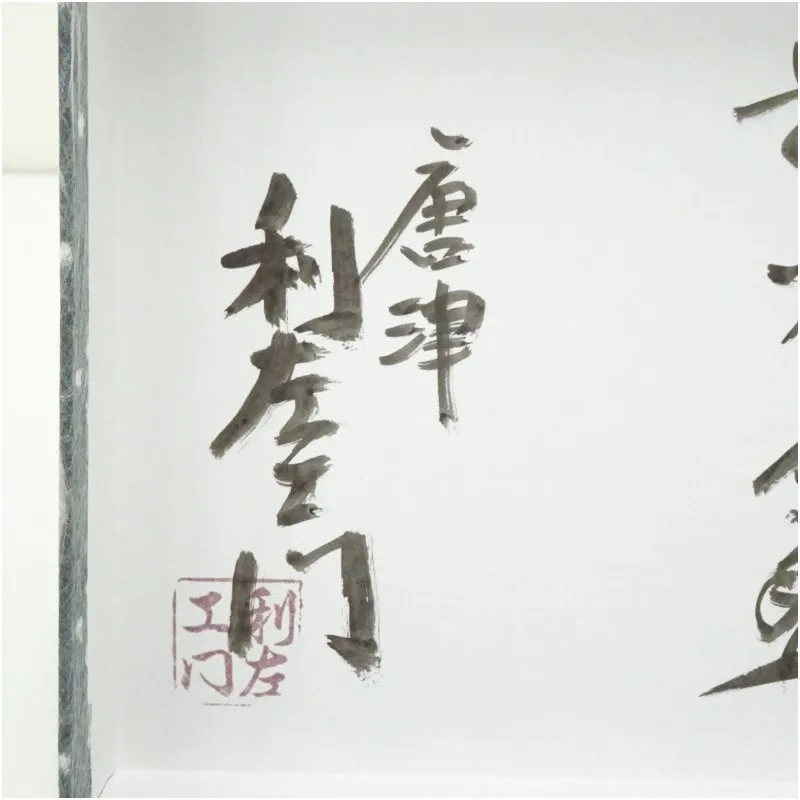 唐津
利左エ门
利左
エ门